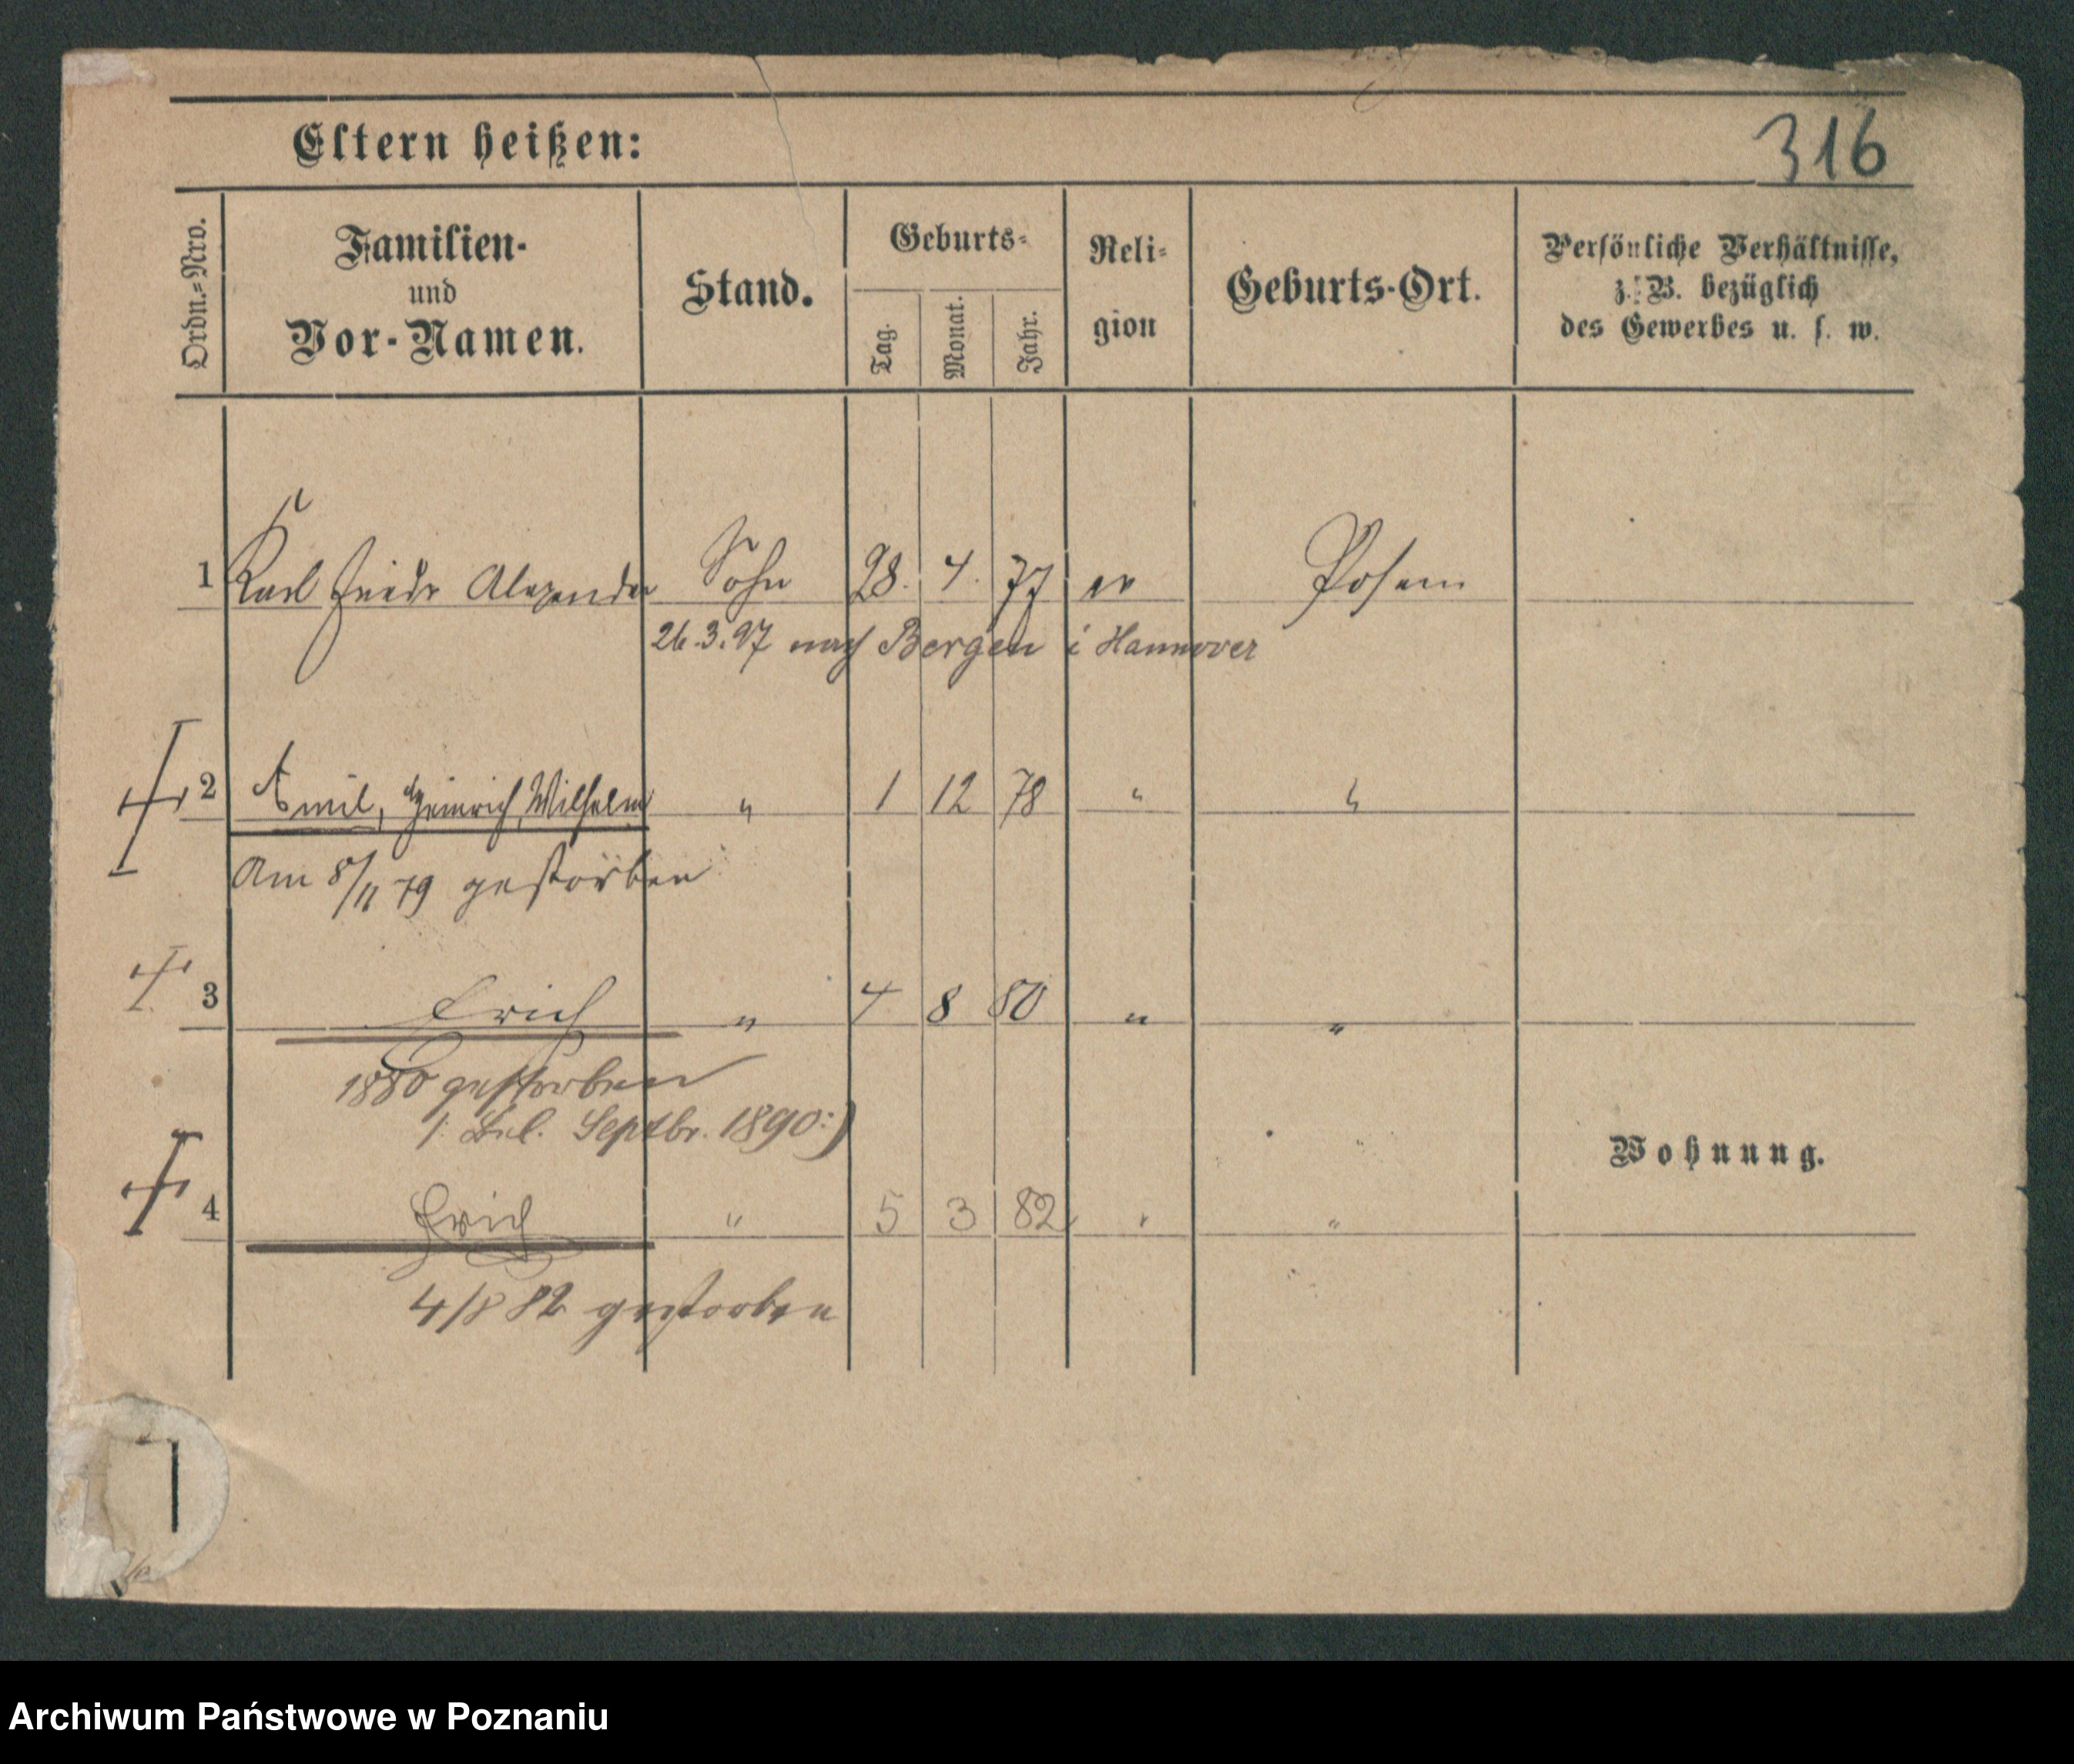 316
Eltern heißen:
Ordn.=Nro.
Familien-
und
Vor-Namen.
Stand.
Geburts-
Tag.
Monat.
Jahr.
Reli-
gion
Geburts-Ort.
Persönliche Verhältnisse,
z. B. bezüglich
des Gewerbes u. s. w.
1 Karl Friedr Alexander Sohn 28. 4. 77 ev Posen
26.3.97 nach Bergen i Hannover
2 Emil, Heinrich, Wilhelm " 1 12 78 " "
Am 8/11 79 gestorben
3 Erich " 4 8 80 " "
1880 gestorben
Septbr. 1890:)
Wohnung.
4 Erich " 5 3 82 " "
4/8 82 gestorben
Archiwum Państwowe w Poznaniu